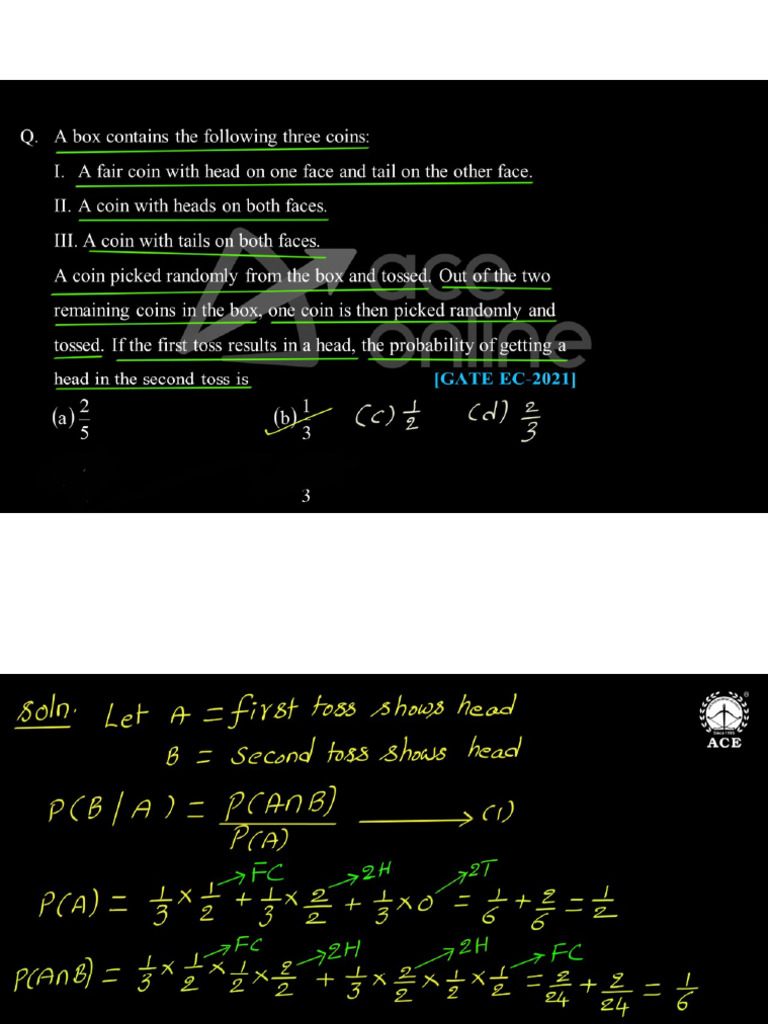 Q. A box contains the following three coins:
I. A fair coin with head on one face and tail on the other face.
II. A coin with heads on both faces.
III. A coin with tails on both faces.
A coin picked randomly from the box and tossed. Out of the two
remaining coins in the box, one coin is then picked randomly and
tossed. If the first toss results in a head, the probability of getting a
head in the second toss is [GATE EC-2021]
(a) 2/5 (b) 1/3 (c) 1/2 (d) 2/3
ace
online
3
Soln. Let A = first toss shows head
B = Second toss shows head
P(B/A) = P(A∩B)/P(A) → (1)
→FC →2H →2T
P(A) = 1/3 × 1/2 + 1/3 × 2/2 + 1/3 × 0 = 1/6 + 2/6 = 1/2
→FC →2H →2H →FC
P(A∩B) = 1/3 × 1/2 × 1/2 × 2/2 + 1/3 × 2/2 × 1/2 × 1/2 = 2/24 + 2/24 = 1/6
ACE